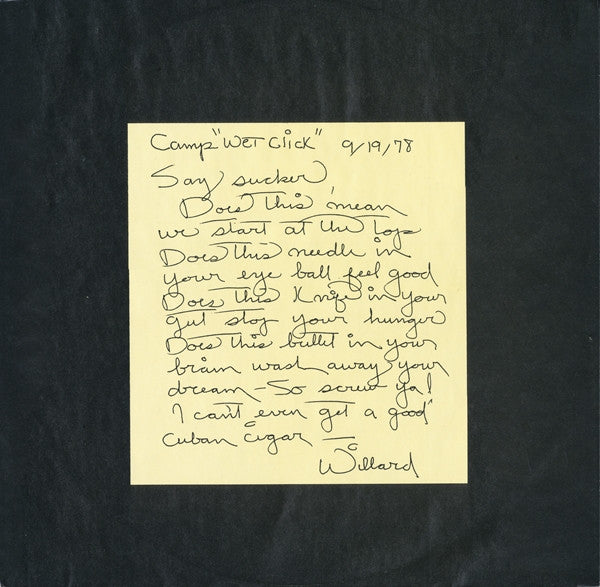 Camp "Wet Glick" 9/19/78
Say sucker,
Does this mean
we start at the top
Does this needle in
your eye ball feel good
Does this Knife in your
gut stop your hunger
Does this bullet in your
brain wash away your
dream – So screw ya!
I can't even get a good"
Cuban cigar —
Willard